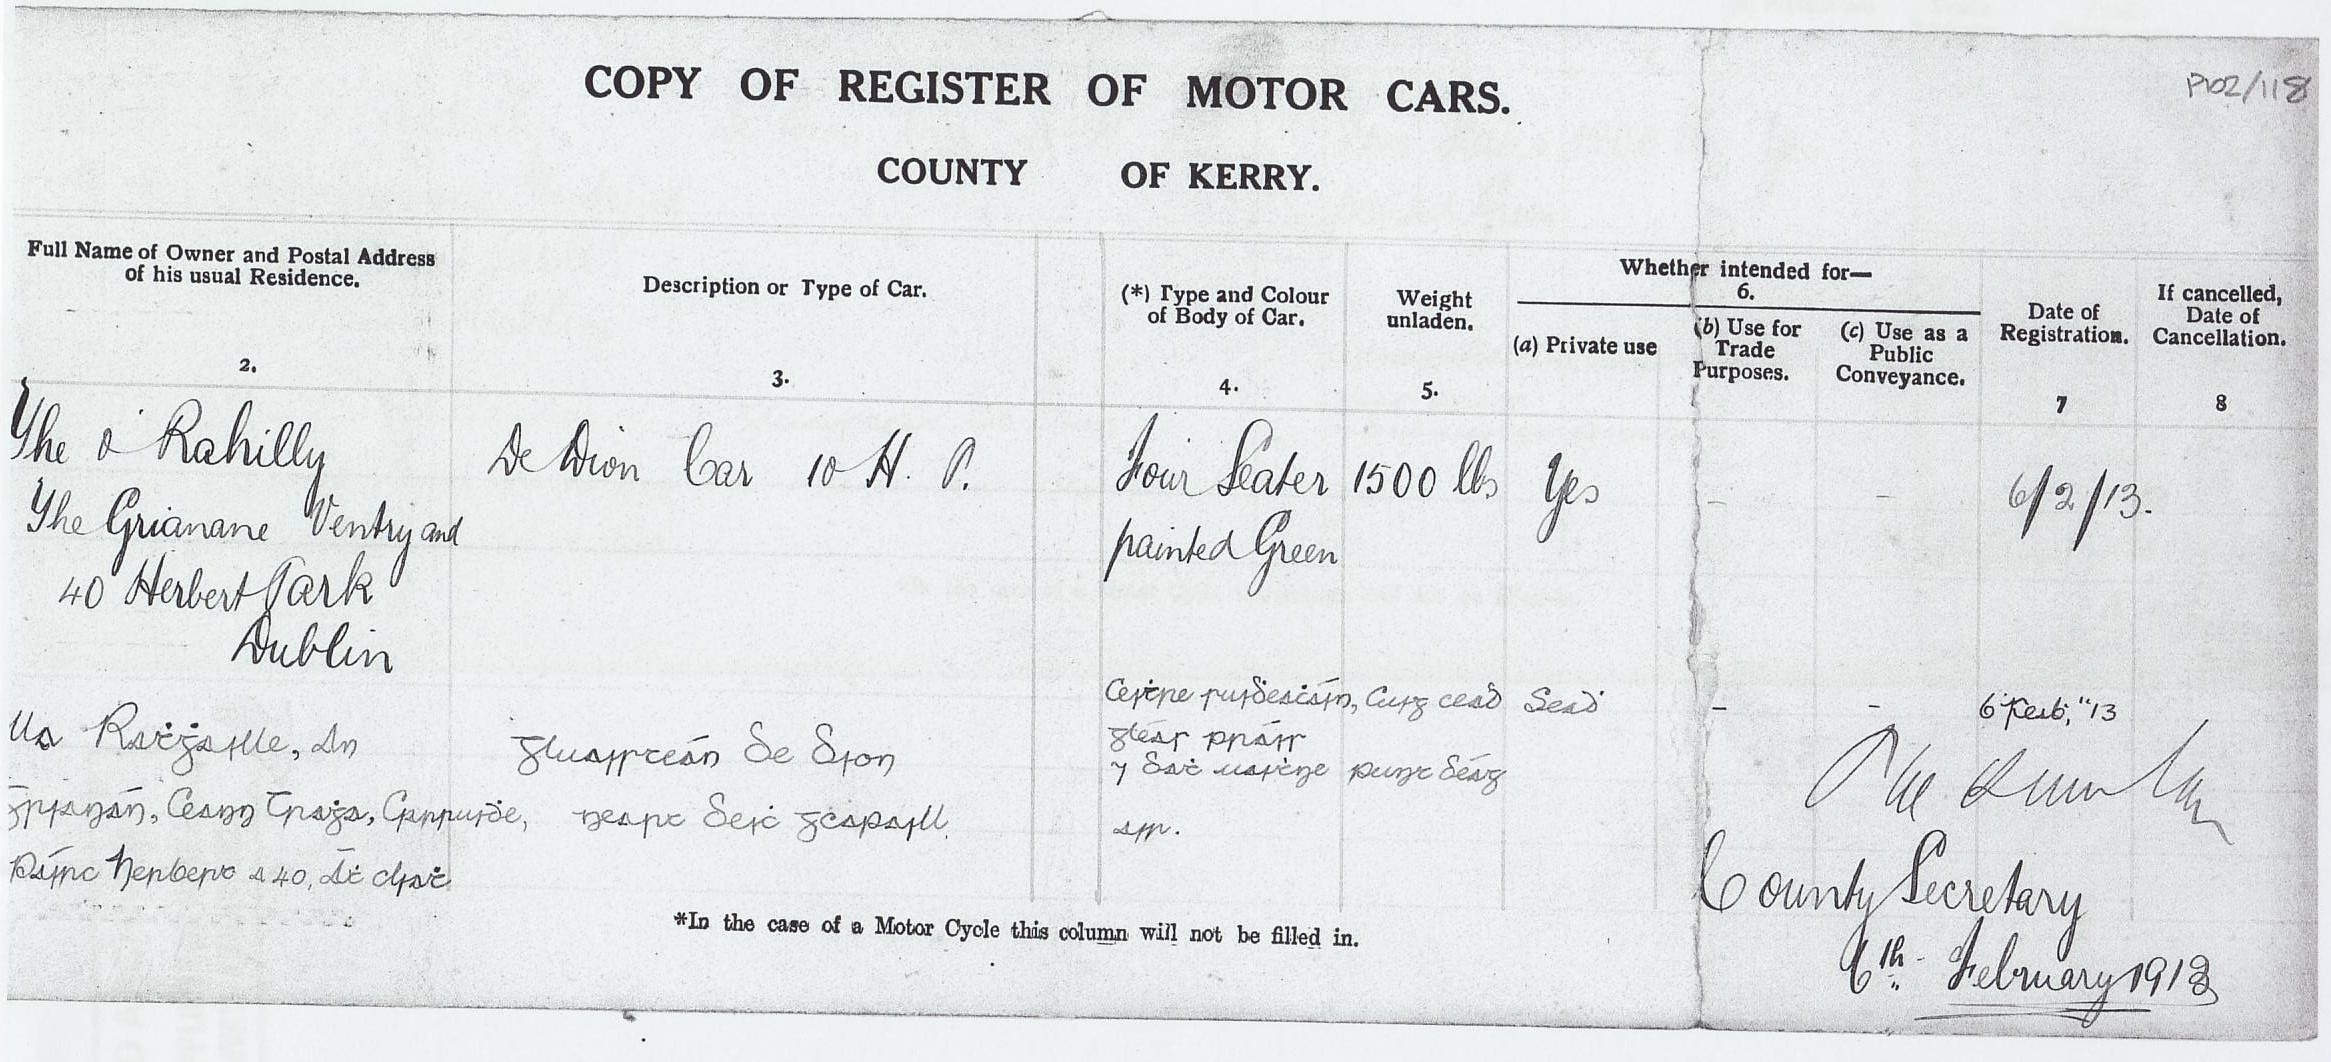 P102/118
COPY OF REGISTER OF MOTOR CARS.
COUNTY OF KERRY.
Full Name of Owner and Postal Address
of his usual Residence.
2.
Description or Type of Car.
3.
(*) Type and Colour
of Body of Car.
4.
Weight
unladen.
5.
Whether intended for—
6.
(a) Private use
(b) Use for
Trade
Purposes.
(c) Use as a
Public
Conveyance.
Date of
Registration.
7
If cancelled,
Date of
Cancellation.
8
The O'Rahilly
The Grianane Ventry and
40 Herbert Park
Dublin
De Dion Car 10 H. P.
Four Seater
painted Green
1500 lbs
Yes
–
–
6/2/13.
Ua Raṫġaille, An
Grianán, Ceann Tráġa, Ciarruiḋe,
Páirc Herbert a 40, Áṫ Cliaṫ
Gluaisteán De Dion
neart deiċ gcapaill
Ceiṫre suiḋeaċáin,
gléas práis
⁊ daṫ uaiṫne
air.
Cúig céad
punt déag
Seaḋ
–
–
6 Feab, "13
County Secretary
6th February 1913
*In the case of a Motor Cycle this column will not be filled in.